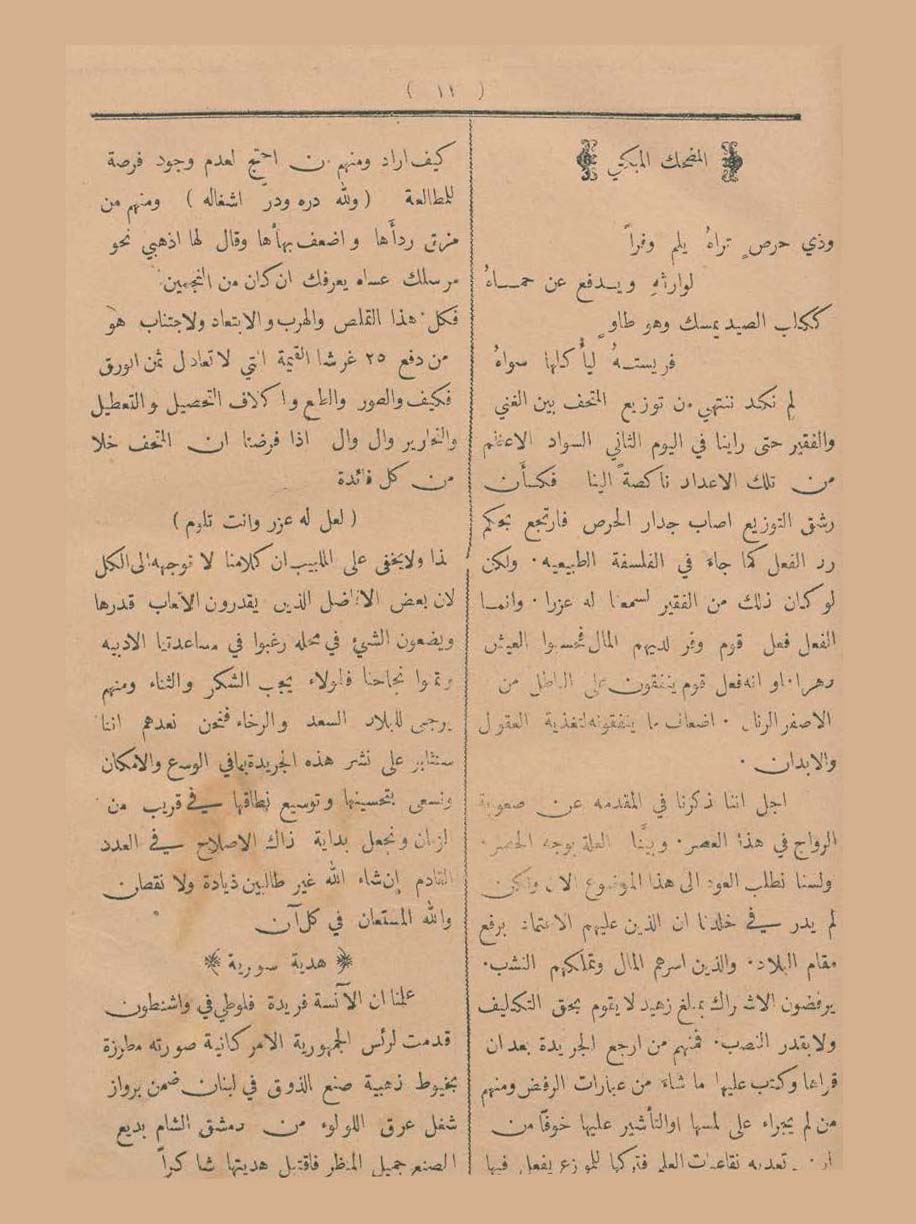 ( ١١ )
المضحك المبكي
وذي حرصٍ تراهُ يلم وفراً
لوارثهِ ويدفع عن حماهُ
ككلب الصيد يمسك وهو طاوٍ
فريستهُ ليأكلها سواهُ
لم نكد ننتهي من توزيع المتحف بين الغني
والفقير حتى راينا في اليوم الثاني السواد الاعظم
من تلك الاعداد ناكصةً الينا فكسأن
رشق التوزيع اصاب جدار الحرص فارتجع بحكم
رد الفعل كما جاء في الفلسفة الطبيعيه ٠ ولكن
لو كان ذلك من الفقير لسمعنا له عزرا ٠ وانما
الفعل فعل قوم وفر لديهم المال فحسبوا العيش
دهرا ٠ او انه فعل قوم ينفقون على الباطل من
الاصفر الرنان ٠ اضعاف ما ينفقونه لتغذية العقول
والابدان ٠
اجل اننا ذكرنا في المقدمه عن صعوبة
الرواج في هذا العصر ٠ وبينَّا العلة بوجه الحصر ٠
ولسنا نطلب العود الى هذا الموضوع الان ولكن
لم يدر في خلدنا ان الذين عليهم الاعتماد برفع
مقام البلاد ٠ والذين اسرهم المال وتملكهم النشب ٠
يرفضون الاشتراك بمبلغ زهيد لا يقوم بحق التكليف
ولا بقدر النصب ٠ فمنهم من ارجع الجريدة بعد ان
قراها وكتب عليها ما شاء من عبارات الرفض ومنهم
من لم يجراء على لمسها اوالتأشير عليها خوفاً من
ان تعديه نقاعات العلم فتركها للموزع يفعل فيها
كيف اراد ومنهم من احتج لعدم وجود فرصة
للمطالعة (ولله دره ودر اشغاله) ومنهم من
مزق رداءها واضعف بهاءها وقال لها اذهبي نحو
مرسلك عساه يعرفك ان كان من النجمين
فكل هذا القلص والهرب والابتعاد ولاجتناب هو
من دفع ٢٥ غرشا القيمة التي لا تعادل ثمن الورق
فكيف والصور والطبع واكلاف التحصيل والتعطيل
والتحارير وال وال اذا فرضنا ان المتحف خلا
من كل فائدة
( لعل له عزر وانت تلوم )
لذا ولا يخفى على اللبيب ان كلامنا لا نوجهه الى الكل
لان بعض الافاضل الذين يقدرون الاتعاب قدرها
ويضعون الشئ في محله رغبوا في مساعدتنا الادبيه
وتمنوا نجاحنا فلولاء يجب الشكر والثناء ومنهم
يرجى للبلاد السعد والرخاء فنحن نعدهم اننا
سنثابر على نشر هذه الجريدة بما في الوسع والامكان
ونسعى بتحسينها وتوسيع نطاقها في قريب من
الزمان ونجعل بداية ذاك الاصلاح في العدد
القادم إن شاء الله غير طالبين ذيادة ولا نقصان
والله المستعان في كل آن
هدية سورية
علمنا ان الآنسة فريدة فلوطي في واشنطون
قدمت لرئس الجمهورية الامركانية صورته مطرزة
بخيوط ذهبية صنع الذوق في لبنان ضمن برواز
شغل عرق اللولوء من دمشق الشام بديع
الصنع جميل المنظر فاقتبل هديتها شاكراً